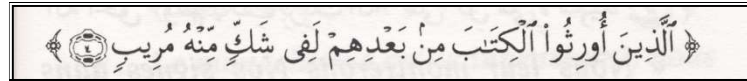 ﴿ ٱلَّذِينَ أُورِثُوا۟ ٱلْكِتَـٰبَ مِنۢ بَعْدِهِمْ لَفِى شَكٍّ مِّنْهُ مُرِيبٍ ﴾